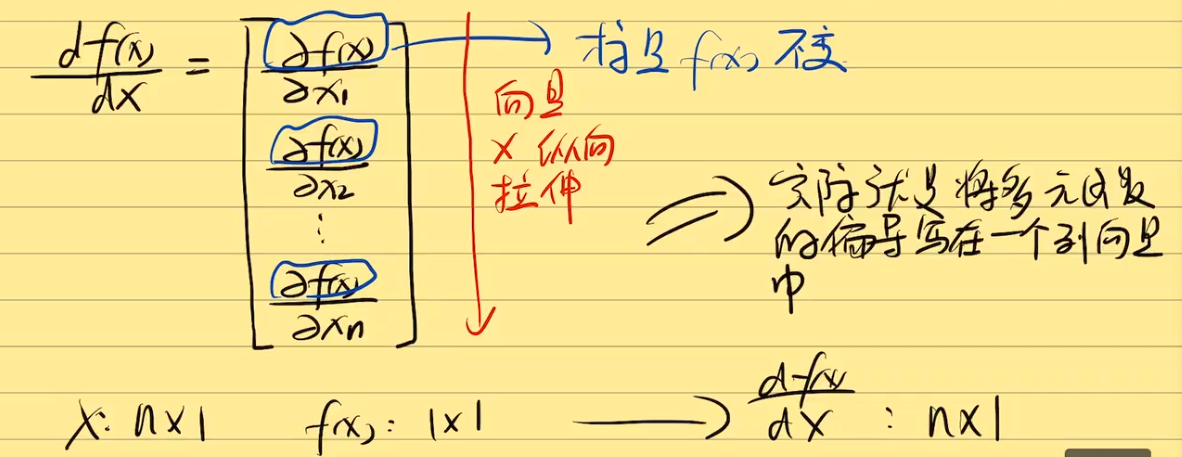 df(x)/dx = [∂f(x)/∂x₁
∂f(x)/∂x₂
⋮
∂f(x)/∂xn]
标量f(x)不变
向量
X 纵向
拉伸
实际就是将多元函数
的偏导写在一个列向量
中
X: n×1 f(x): 1×1 → df(x)/dX : n×1